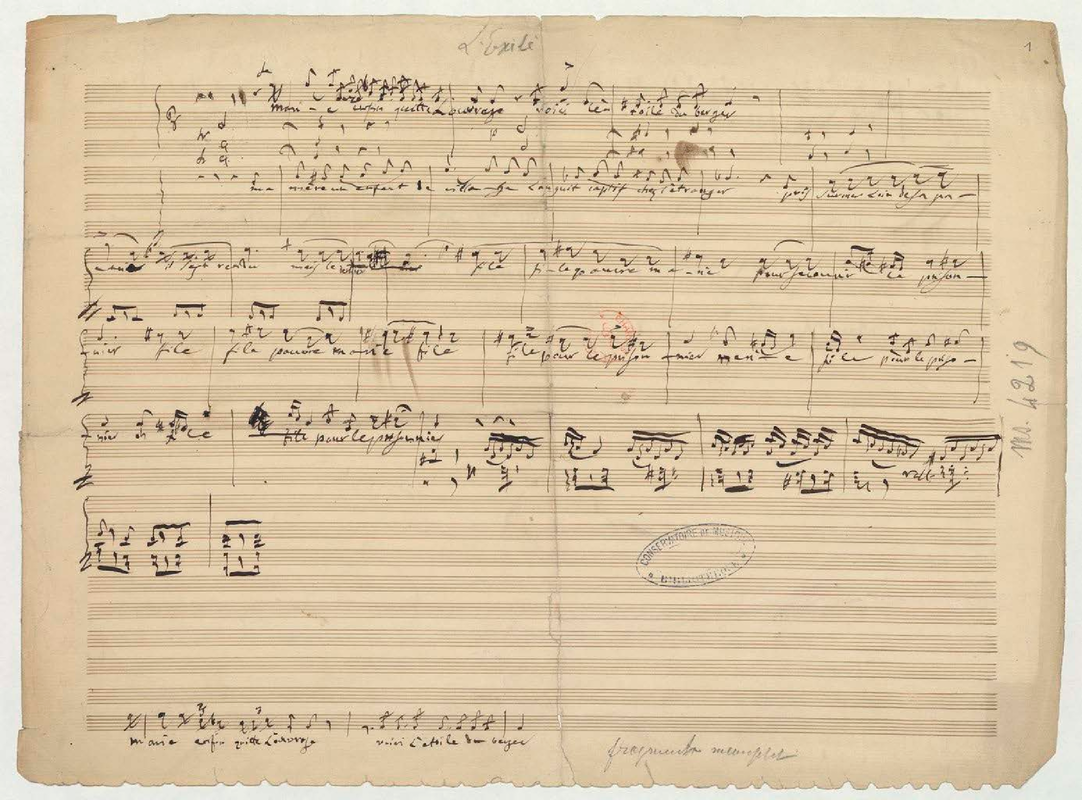 L'Exilé
1
Marie enfin quitte L'ouvrage voici l'é toile du berger
ma mère un enfant du villa-ge Languit captif chez L'étranger pris sur mer Loin de sa pa-
il s'est rendu mais le file fi-le pauvre ma-rie pour secourir le prison-
nier file file pauvre marie file file pour le prison-nier marie file pour le priso-
nier file file pour le prisonnier
rall
CONSERVATOIRE DE MUSIQUE
BIBLIOTHEQUE
Marie enfin quitte L'ouvrage voici L'etoile du berger
fragment incomplet
Ms. 4219